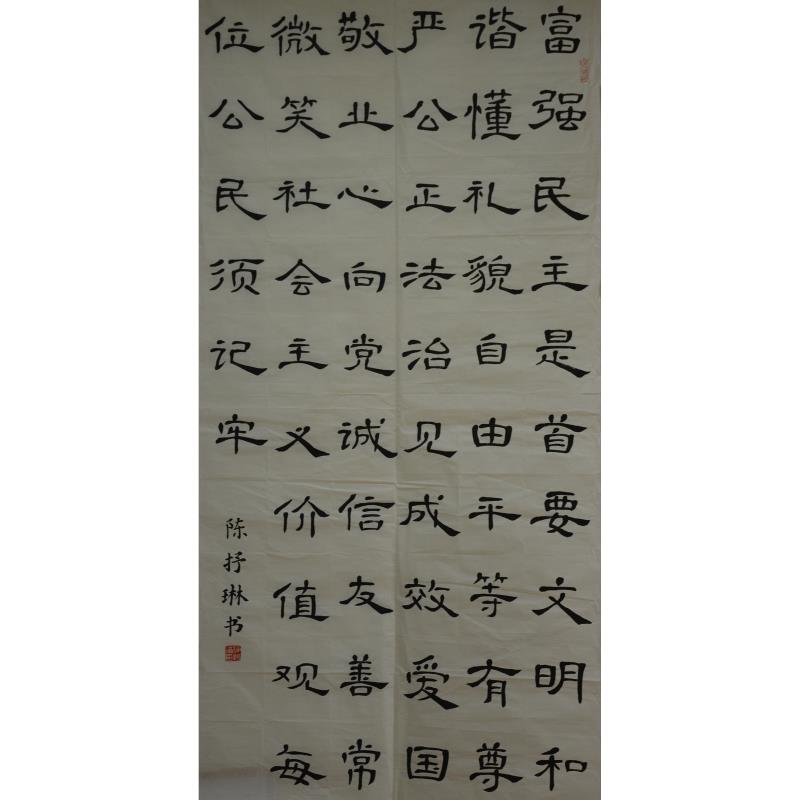 富强民主是首要文明和
谐懂礼貌自由平等有尊
严公正法治见成效爱国
敬业心向党诚信友善常
微笑社会主义价值观每
位公民须记牢
陈抒琳书